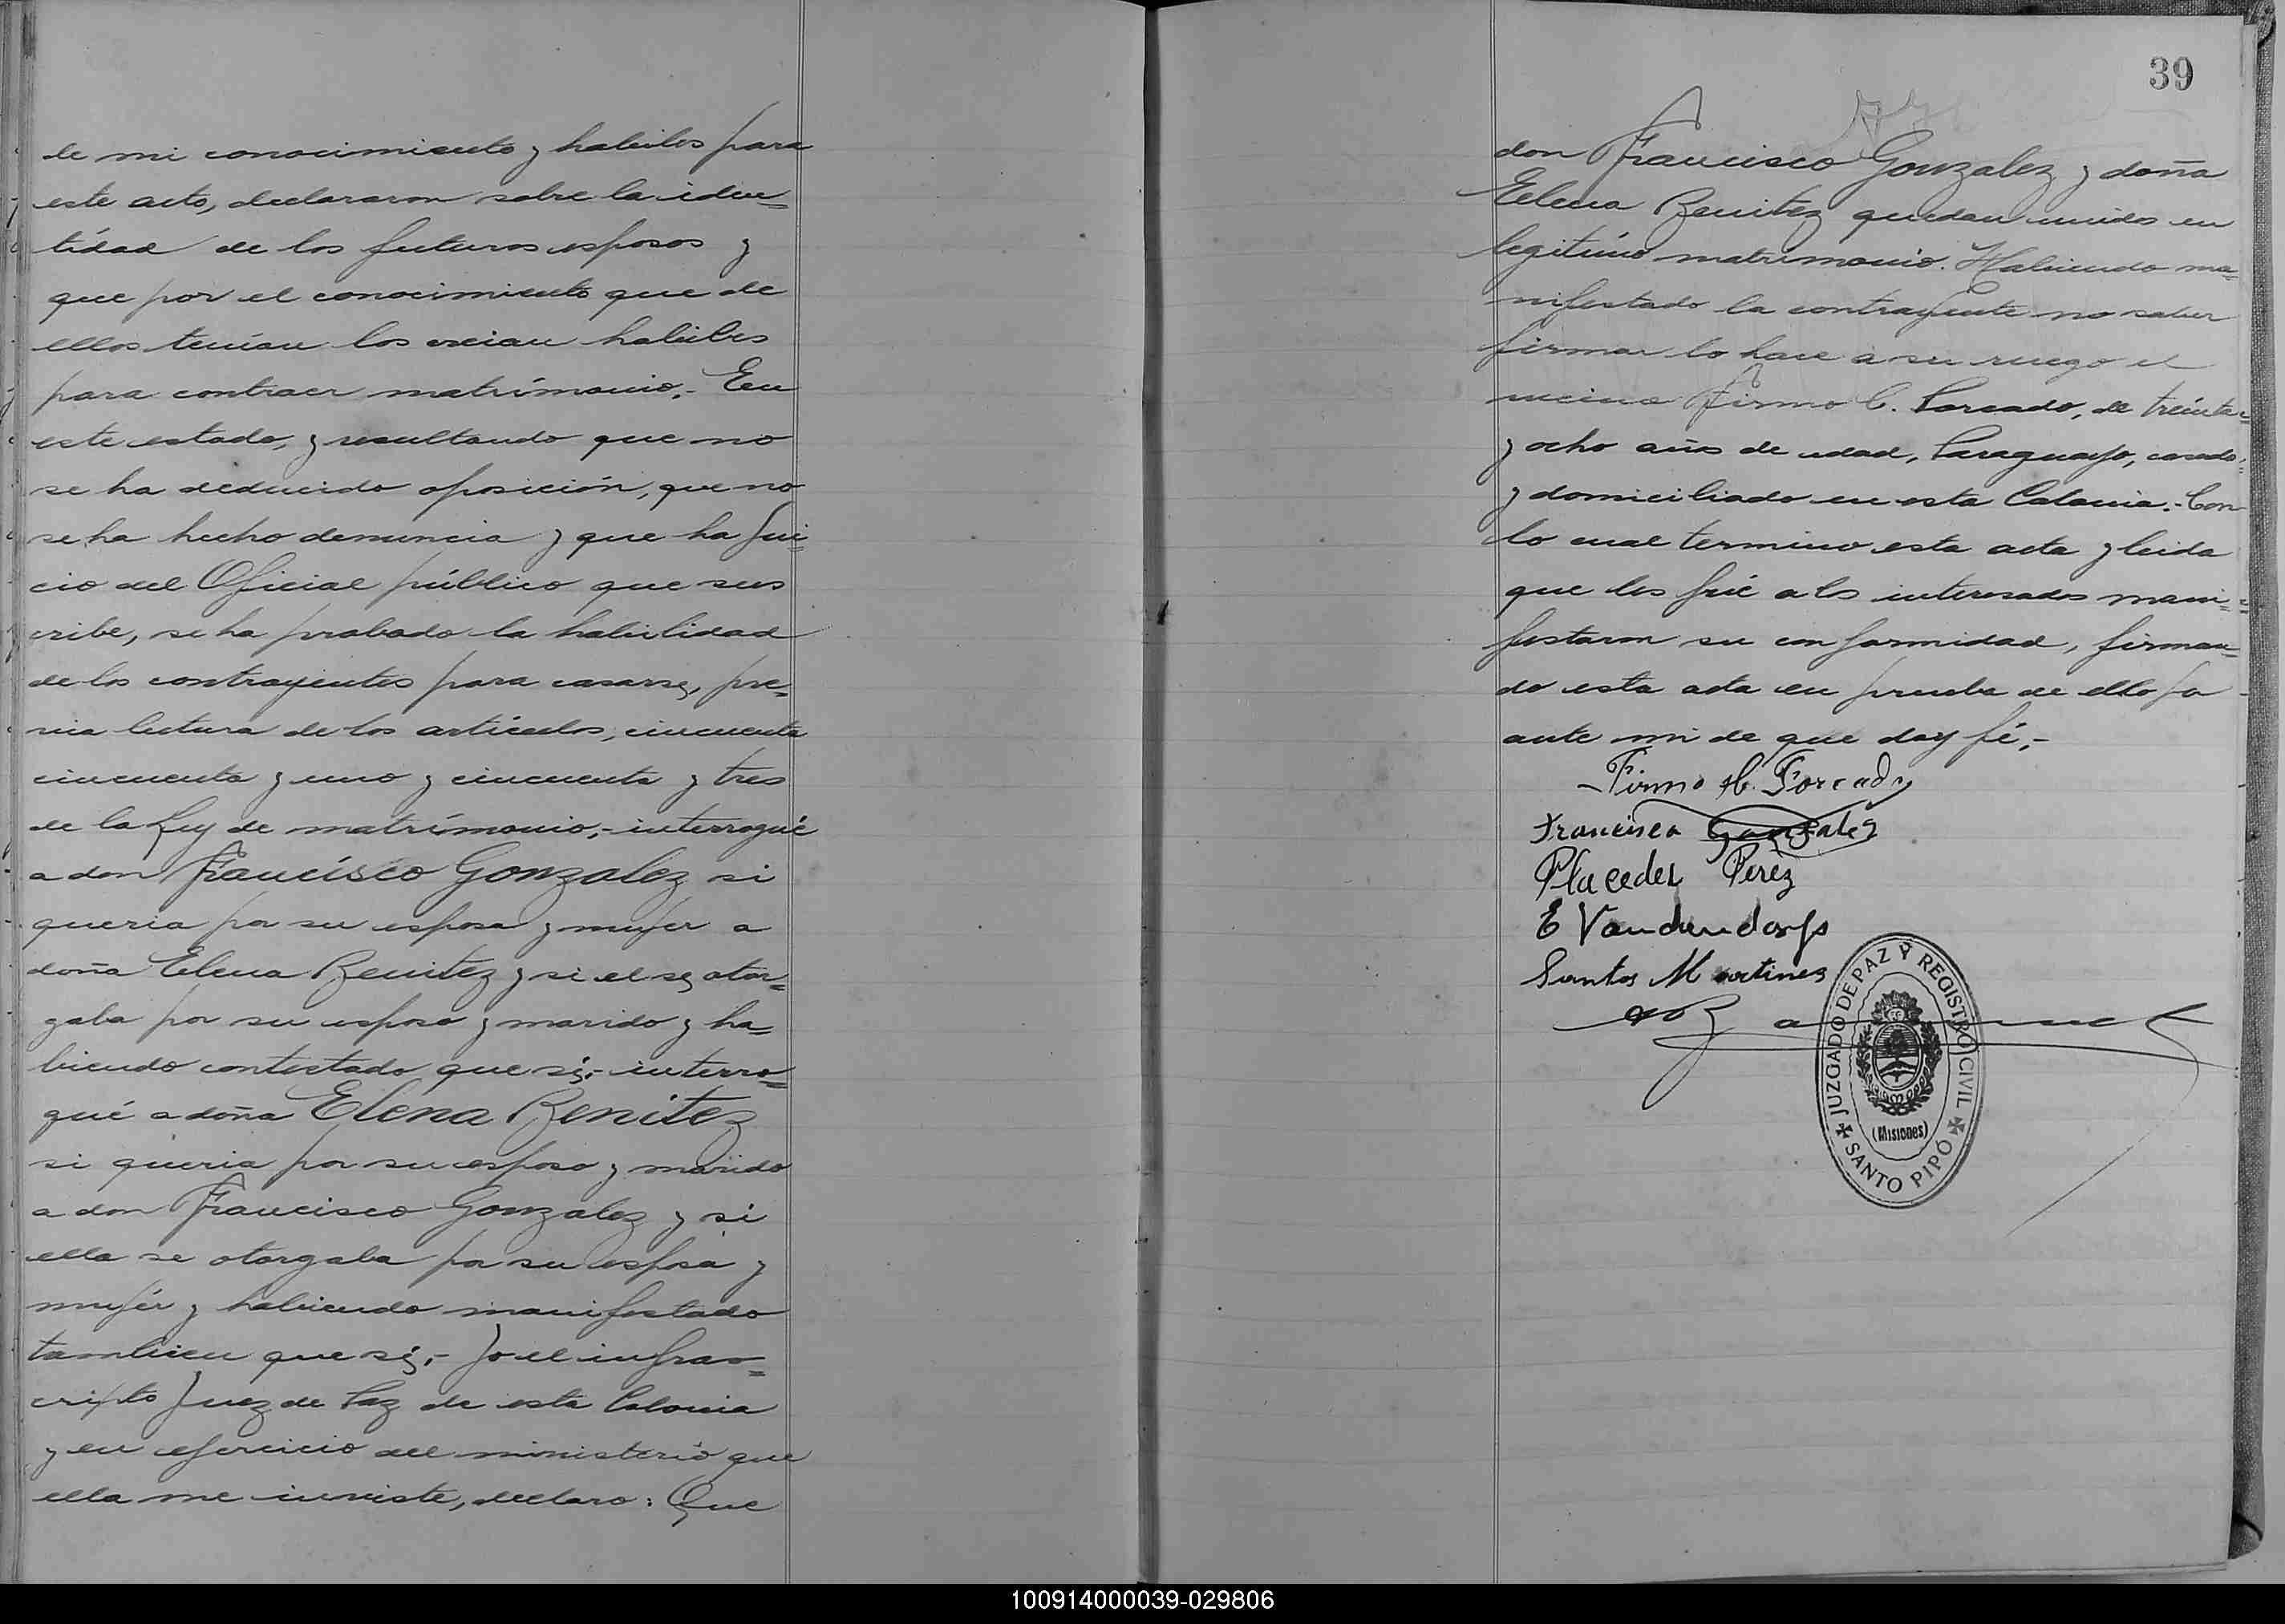 de mi conocimiento y habiles para
este acto, declararon sobre la iden=
tidad de los futuros esposos y
que por el conocimiento que de
ellos tenian los creian habiles
para contraer matrimonio.- En
este estado, y resultando que no
se ha deducido oposición, que no
se ha hecho denuncia y que ha jui=
cio del Oficial público que sus
cribe, se ha probado la habilidad
de los contrayentes para casarse, pre=
via lectura de los artículos, cincuenta
cincuenta y uno y cincuenta y tres
de la Ley de matrimonio,- interrogué
a don Francisco Gonzalez si
queria por su esposa y mujer a
doña Elena Benitez y si el se otor=
gaba por su esposo y marido y ha=
biendo contestado que si,- interro=
gué a doña Elena Benitez
si queria por su esposo y marido
a don Francisco Gonzalez y si
ella se otorgaba por su esposa y
mujer y habiendo manifestado
tambien que si,- yo el infras=
cripto Juez de Paz de esta Colonia
y en ejercicio del ministerio que
ella me inviste, declaro: Que
39
don Francisco Gonzalez y doña
Elena Benitez quedan unidos en
legitimo matrimonio. Habiendo ma=
nifestado la contrayente no saber
firmar lo hace a su ruego el
vecino Firmo C. Forcado, de treinta=
y ocho años de edad, Paraguayo, casado=
y domiciliado en esta Colonia.- Con
lo cual termino esta acta y leida
que les fué a los interesados mani=
festaron su conformidad, firman=
do esta acta en prueba de ello por
ante mi de que doy fé,-
Firmo H. Forcado
Francisco Gonzalez
Placedes Perez
E Vandendorp
Santos Martines
JUZGADO DE PAZ Y REGISTRO CIVIL
(Misiones)
SANTO PIPÓ
100914000039-029806